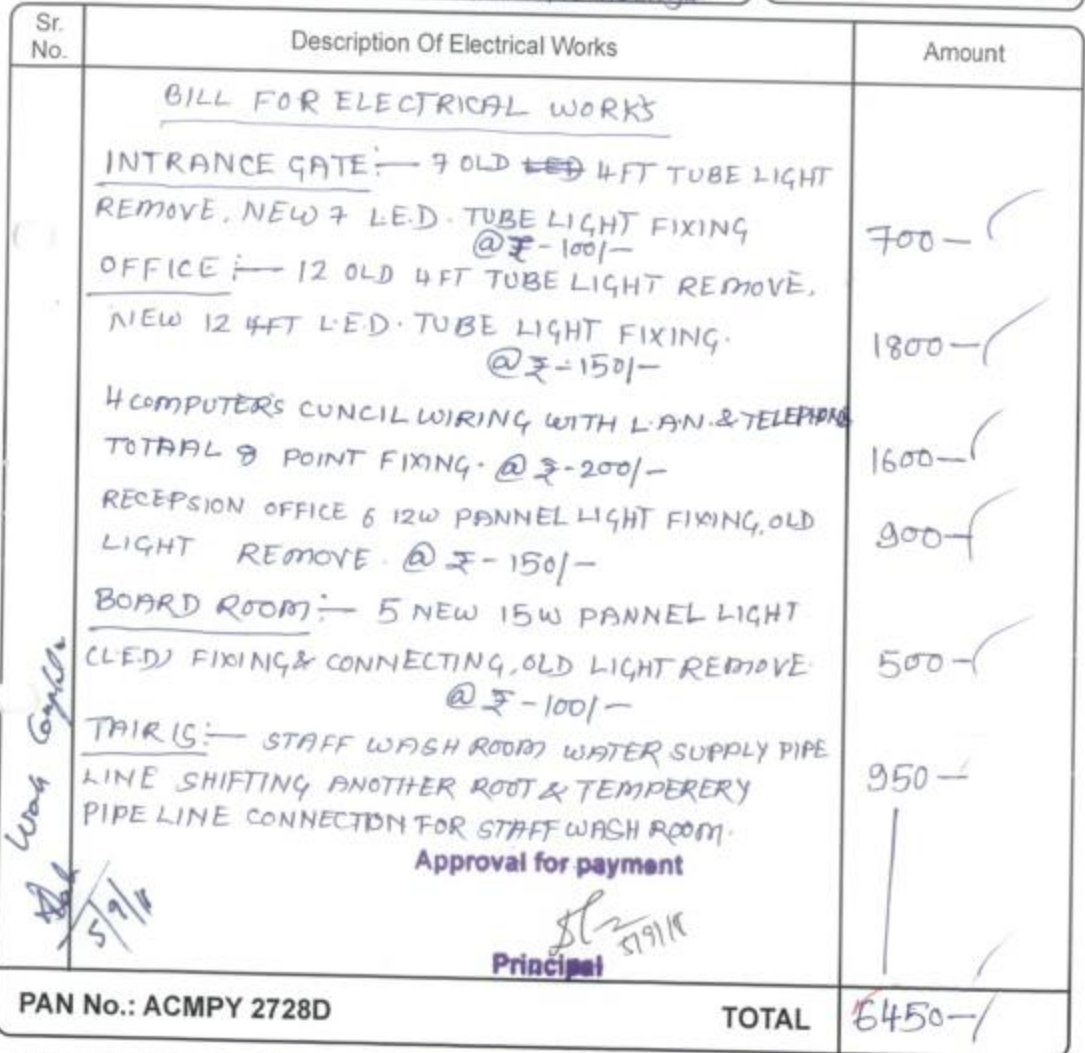 Sr. No.
Description Of Electrical Works
Amount
BILL FOR ELECTRICAL WORKS
INTRANCE GATE:— 7 OLD LED 4FT TUBE LIGHT
REMOVE. NEW 7 L.E.D. TUBE LIGHT FIXING
@ ₹-100/-
700-/
OFFICE:— 12 OLD 4FT TUBE LIGHT REMOVE.
NEW 12 4FT L.E.D. TUBE LIGHT FIXING.
@ ₹-150/-
1800-/
4 COMPUTERS CUNCIL WIRING WITH L.A.N. & TELEPHONE
TOTAAL 8 POINT FIXING. @ ₹-200/-
1600-/
RECEPSION OFFICE 6 12W PANNEL LIGHT FIXING, OLD
LIGHT REMOVE. @ ₹-150/-
900-/
BOARD ROOM:— 5 NEW 15W PANNEL LIGHT
(L.E.D) FIXING & CONNECTING, OLD LIGHT REMOVE.
@ ₹-100/-
500-/
TAIRIS:— STAFF WASH ROOM WATER SUPPLY PIPE
LINE SHIFTING ANOTHER ROOT & TEMPERERY
PIPE LINE CONNECTION FOR STAFF WASH ROOM.
950-
Approval for payment
5/9/18
Principal
5/9/18
PAN No.: ACMPY 2728D
TOTAL
6450-/